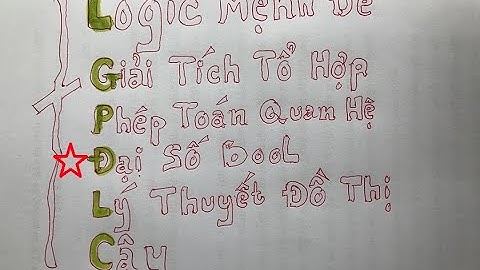 Logic Mệnh Đề
Giải Tích Tổ Hợp
Phép Toán Quan Hệ
Đại Số Bool
Lý Thuyết Đồ Thị
Cây